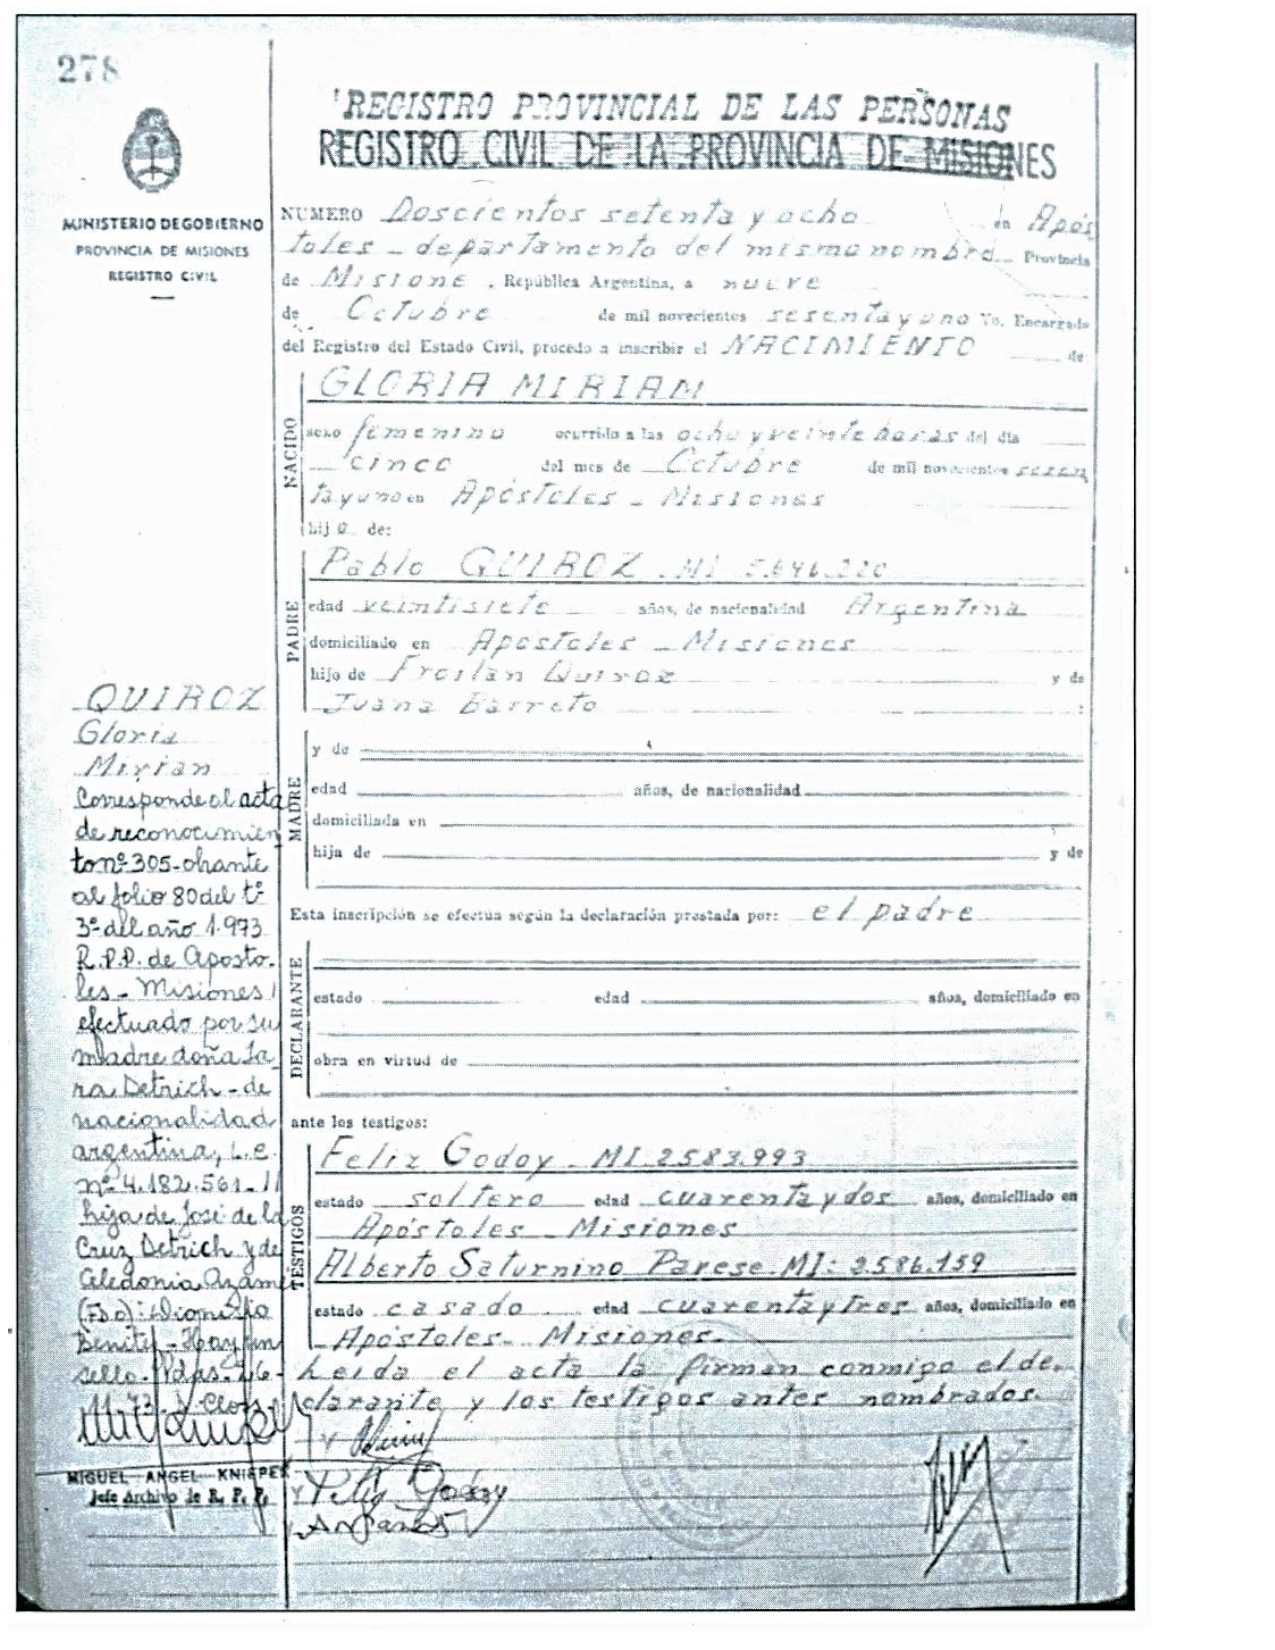 278
REGISTRO PROVINCIAL DE LAS PERSONAS
REGISTRO CIVIL DE LA PROVINCIA DE MISIONES
MINISTERIO DE GOBIERNO
PROVINCIA DE MISIONES
REGISTRO CIVIL
NUMERO Doscientos setenta y ocho en Após
toles - departamento del mismo nombre Provincia
de Misione, República Argentina, a nueve
de Octubre de mil novecientos sesenta y uno Yo, Encargado
del Registro del Estado Civil, procedo a inscribir el NACIMIENTO de
NACIDO
GLORIA MIRIAM
sexo femenino ocurrido a las ocho y veinte horas del día
cinco del mes de Octubre de mil novecientos sesen
ta y uno en Apóstoles - Misiones
hija de:
PADRE
Pablo QUIROZ. MI 5.646.220
edad veintisiete años, de nacionalidad Argentina
domiciliado en Apostoles - Misiones
hijo de Froilan Quiroz y de
Juana Barreto
MADRE
y de
edad años, de nacionalidad
domiciliada en
hija de y de
Esta inscripción se efectua según la declaración prestada por: el padre
DECLARANTE
estado edad años, domiciliado en
obra en virtud de
ante los testigos:
TESTIGOS
Feliz Godoy - MI 2583.993
estado soltero edad cuarenta y dos años, domiciliado en
Apóstoles - Misiones
Alberto Saturnino Parese. MI: 2.586.159
estado casado edad cuarenta y tres años, domiciliado en
- Apóstoles - Misiones.-
Leida el acta la firman conmigo el de-
clarante y los testigos antes nombrados.
Feliz Godoy
QUIROZ
Gloria
Mirian
Corresponde al acta
de reconocimien
to nº 305 - obrante
al folio 80 del tº
3º del año 1.973
R.P.P. de Aposto-
les - Misiones
efectuado por su
madre doña Sa
ra Detrich - de
nacionalidad
argentina, L.C.
nº 4.182.561 -
hija de José de la
Cruz Detrich y de
Celedonia
(Fdo):
Benitez - Hay un
sello - Pdas. 26-
11-73
MIGUEL ANGEL KNIEPER
Jefe Archivo de R. P. P.